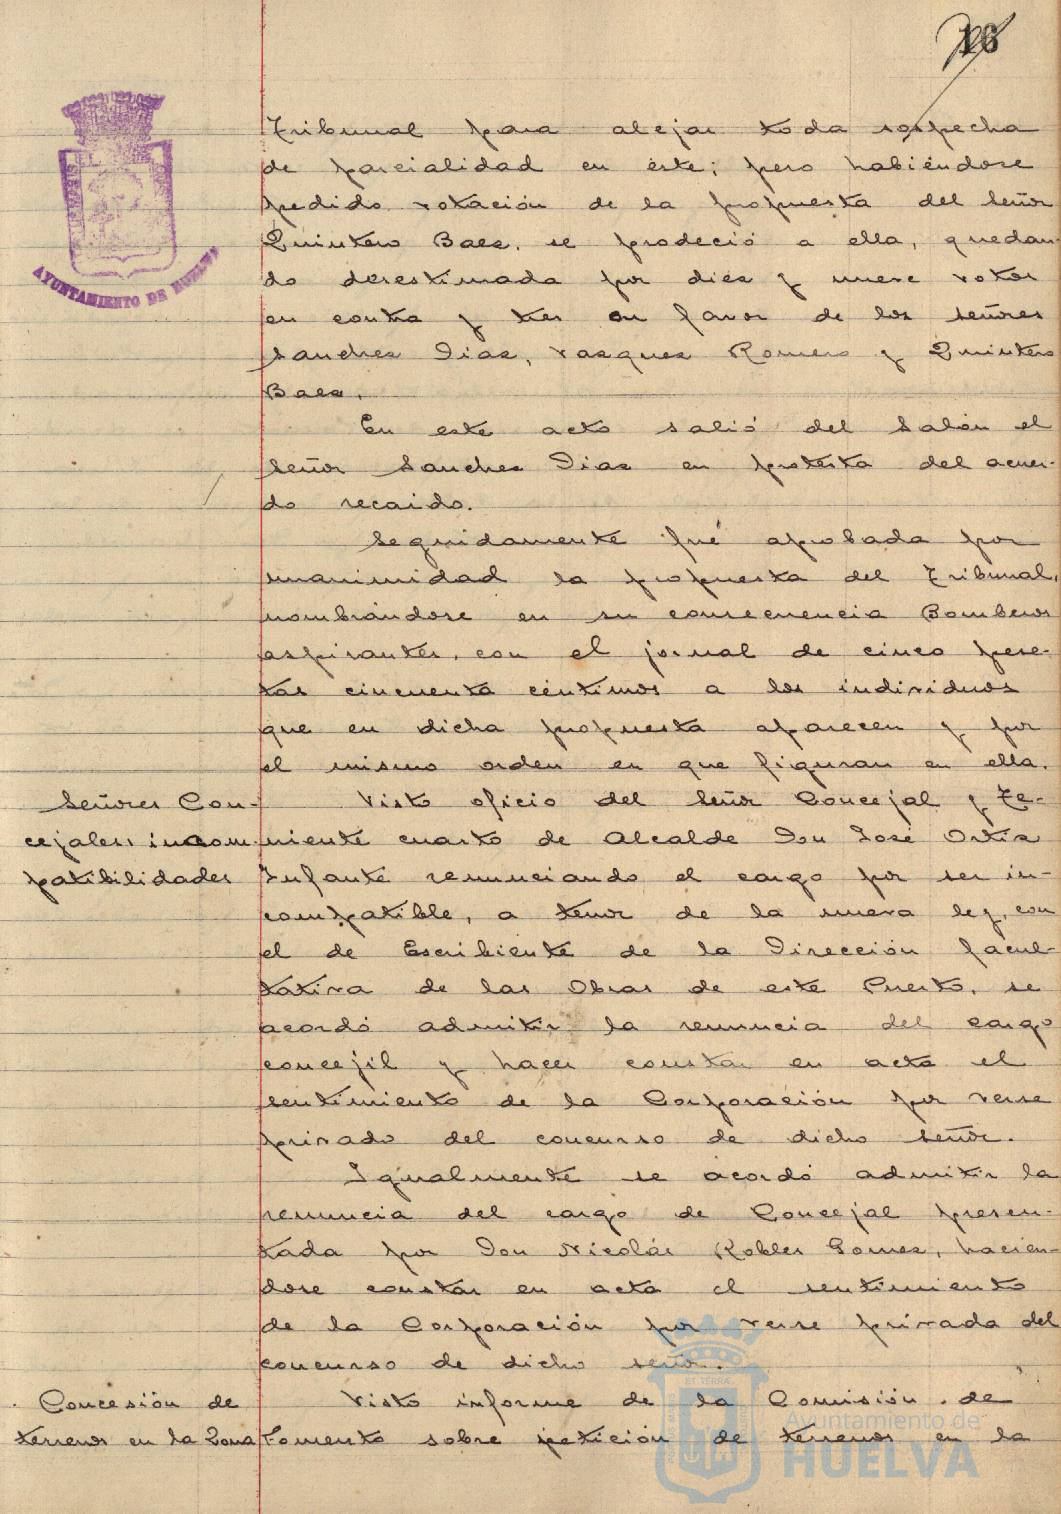 16
Tribunal para alejar toda sospecha
de parcialidad en éste; pero habiéndose
pedido votación de la propuesta del Señor
Quintero Baez, se prodeció a ella, quedan-
do desestimada por diez y nueve votos
en contra y tres en favor de los señores
Sanchez Diaz, Vazquez Romero y Quintero
Baez.
En este acto salió del Salón el
Señor Sanchez Diaz en protesta del acuer-
do recaido.
Seguidamente fué aprobada por
unanimidad la propuesta del Tribunal,
nombrándose en su consecuencia Bomberos
aspirantes, con el jornal de cinco pese-
tas cincuenta céntimos a los individuos
que en dicha propuesta aparecen y por
el mismo orden en que figuran en ella.
Señores Con-
cejales incom-
patibilidades
Visto oficio del Señor Concejal y Te-
niente cuarto de Alcalde Don José Ortiz
Infante renunciando el cargo por ser in-
compatible, a tenor de la nueva ley, con
el de Escribiente de la Dirección facul-
tativa de las Obras de este Puerto, se
acordó admitir la renuncia del cargo
concejil y hacer constar en acta el
sentimiento de la Corporación por verse
privado del concurso de dicho señor.
Igualmente se acordó admitir la
renuncia del cargo de Concejal presen-
tada por Don Nicolás Robles Gomez, hacien-
dose constar en acta el sentimiento
de la Corporación por verse privada del
concurso de dicho señor.
Concesión de
terrenos en la Zona
Visto informe de la Comisión de
Fomento sobre petición de terrenos en la
AYUNTAMIENTO DE HUELVA
Ayuntamiento de
HUELVA